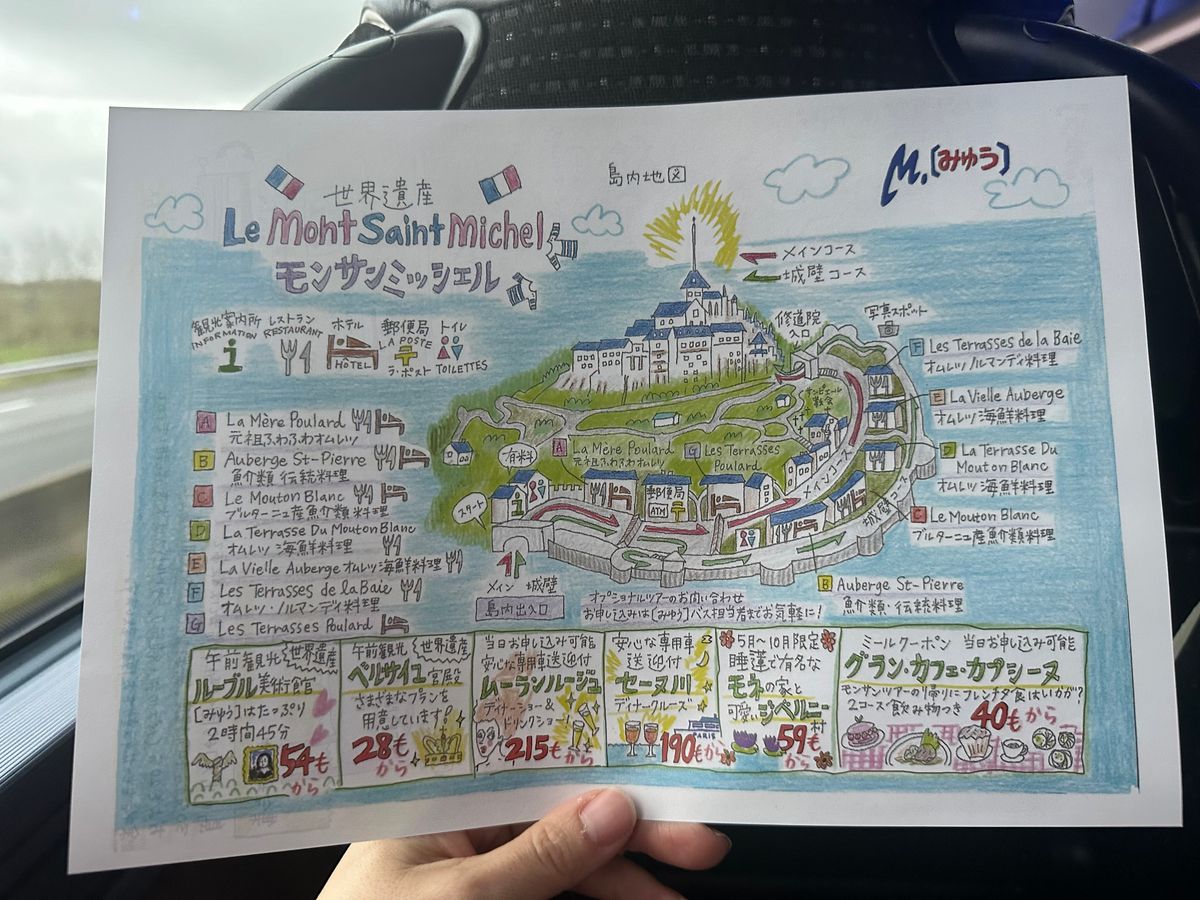 世界遺産
Le Mont Saint Michel
モンサンミッシェル
島内地図
M.[みゅう]
メインコース
城壁コース
観光案内所
INFORMATION
レストラン
RESTAURANT
ホテル
HÔTEL
郵便局
LA POSTE
ラ・ポスト
トイレ
TOILETTES
A La Mère Poulard
元祖ふわふわオムレツ
B Auberge St-Pierre
魚介類・伝統料理
C Le Mouton Blanc
ブルターニュ産魚介類料理
D La Terrasse Du Mouton Blanc
オムレツ 海鮮料理
E La Vielle Auberge オムレツ 海鮮料理
F Les Terrasses de la Baie
オムレツ・ノルマンディ料理
G Les Terrasses Poulard
修道院
入口
写真スポット
F Les Terrasses de la Baie
オムレツ ノルマンディ料理
E La Vielle Auberge
オムレツ 海鮮料理
D La Terrasse Du
Mouton Blanc
オムレツ 海鮮料理
C Le Mouton Blanc
ブルターニュ産魚介類料理
B Auberge St-Pierre
魚介類・伝統料理
有料
A La Mère Poulard
元祖ふわふわオムレツ
G Les Terrasses
Poulard
郵便局
ATM
メインコース
城壁コース
スタート
メイン 城壁
島内出入口
オプショナルツアーのお問い合わせ
お申し込みは[みゅう]バス担当者までお気軽に!
午前観光 世界遺産
ルーブル美術館
[みゅう]はたっぷり
2時間45分
54€
から
午前観光 世界遺産
ベルサイユ宮殿
さまざまなプランを
用意しています
28€
から
当日お申し込み可能
安心な専用車送迎付
ムーランルージュ
ディナーショー&
ドリンクショー
215€から
安心な専用車
送迎付
セーヌ川
ディナークルーズ
PARIS
190€から
5月〜10月限定
睡蓮で有名な
モネの家と
可愛いジベルニー村
59€
から
ミールクーポン 当日お申し込み可能
グラン・カフェ・カプシーヌ
モンサンツアーの帰りにフレンチ夕食はいかが?
2コース・飲み物つき
40€から